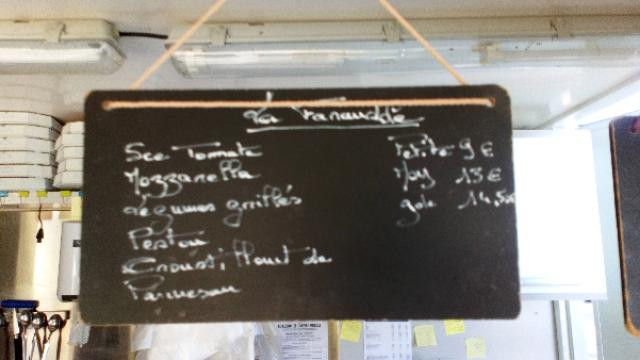 La
Sce Tomate
Mozzarella
légumes grillés
Pestou
Crousti, llant de
Parmesan
Petite 9 €
Moy 13 €
gde 14,50€